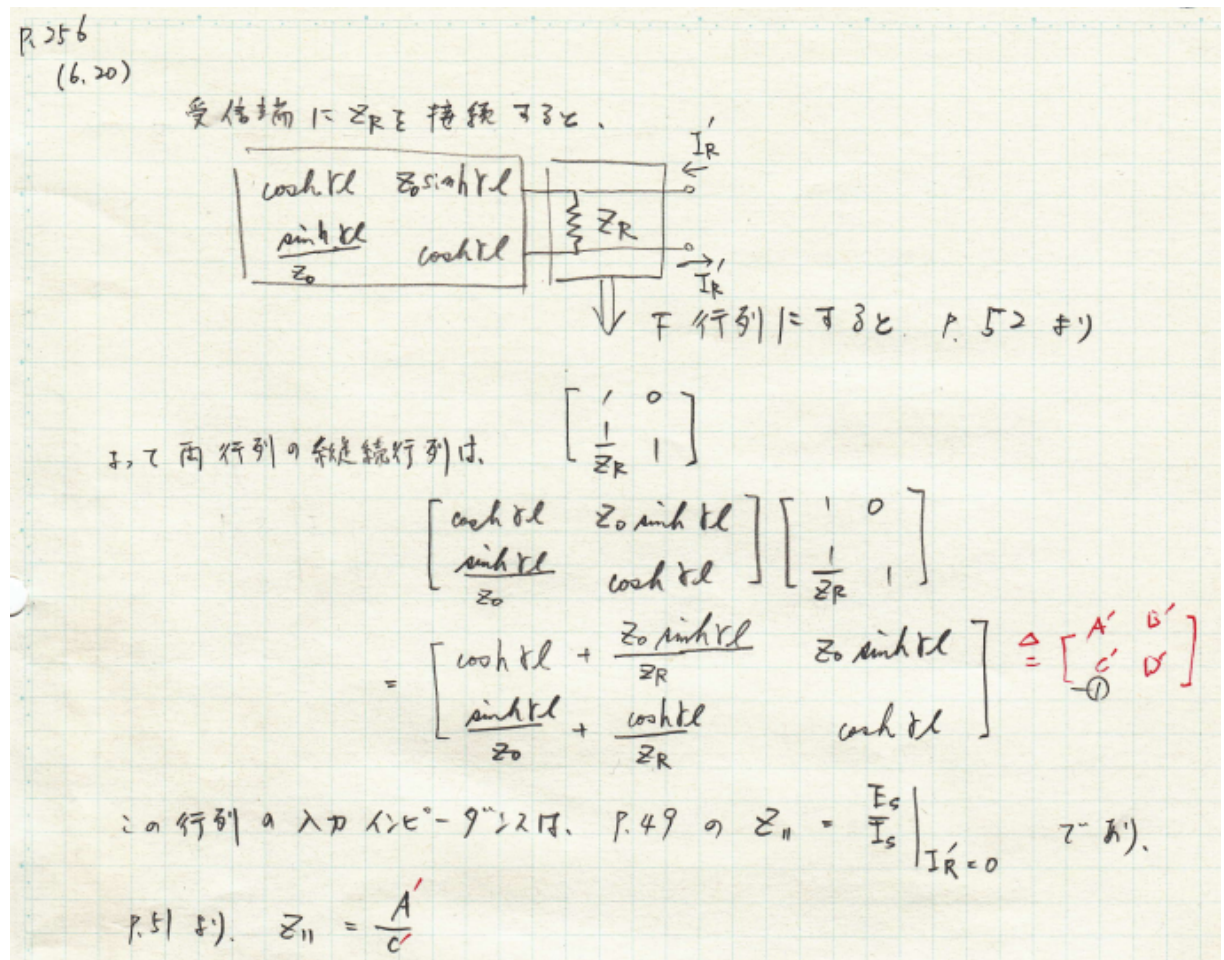 P.256
(6.20)
受信端に Z_R を接続すると、
I_R'
cosh γl   Z_0 sinh γl
Z_R
sinh γl / Z_0   cosh γl
I_R'
F 行列にすると P.52 より
[ 1  0 ; 1/Z_R  1 ]
よって両行列の縦続行列は、
[ cosh γl  Z_0 sinh γl ; sinh γl / Z_0  cosh γl ] [ 1  0 ; 1/Z_R  1 ]
= [ cosh γl + Z_0 sinh γl / Z_R  Z_0 sinh γl ; sinh γl / Z_0 + cosh γl / Z_R  cosh γl ] ≜ [ A' B' ; C' D' ]
-①
この行列の入力インピーダンスは、P.49 の Z_11 = E_s / I_s |_{I_R' = 0} であり、
P.51 より、Z_11 = A' / C'